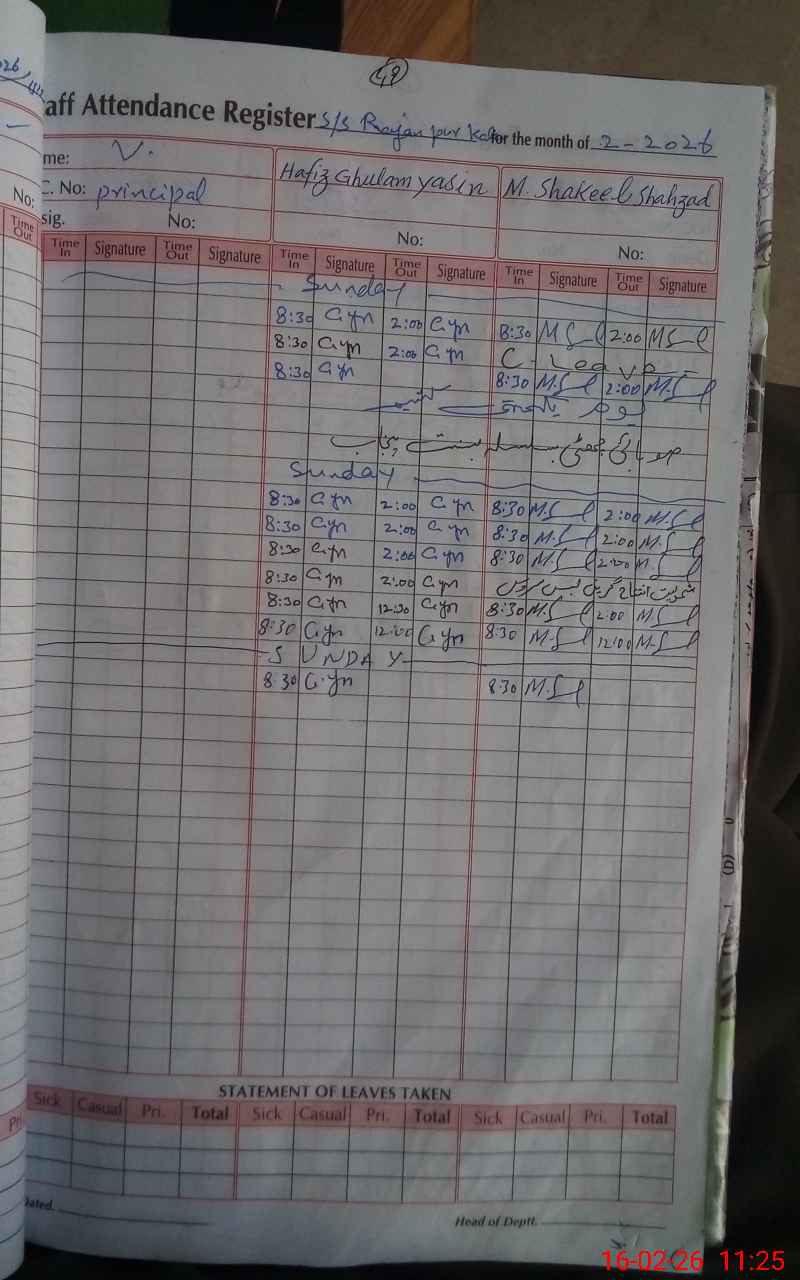 49
aff Attendance Register S/S Rajan pur Kalan for the month of 2-2026
me: V. Hafiz Ghulam yasin M. Shakeel Shahzad
C. No: principal
sig. No: No: No:
Time In Signature Time Out Signature Time In Signature Time Out Signature Time In Signature Time Out Signature
Sunday
8:30 G.yn 2:00 G.yn 8:30 M.Sl 2:00 M.Sl
8:30 G.yn 2:00 G.yn C. Leave
8:30 G.yn 8:30 M.Sl 2:00 M.Sl
یوم یکجہتی کشمیر
صوبائی چھٹی بسلسلہ بسنت پنجاب
Sunday
8:30 G.yn 2:00 G.yn 8:30 M.Sl 2:00 M.Sl
8:30 G.yn 2:00 G.yn 8:30 M.Sl 2:00 M.Sl
8:30 G.yn 2:00 G.yn 8:30 M.Sl 2:00 M.Sl
8:30 G.yn 2:00 G.yn شمولیت افتتاح گرین بس سروس
8:30 G.yn 12:30 G.yn 8:30 M.Sl 2:00 M.Sl
8:30 G.yn 12:00 G.yn 8:30 M.Sl 12:00 M.Sl
SUNDAY
8:30 G.yn 8:30 M.Sl
STATEMENT OF LEAVES TAKEN
Sick Casual Pri. Total Sick Casual Pri. Total Sick Casual Pri. Total
Dated. Head of Deptt.
16-02-26 11:25